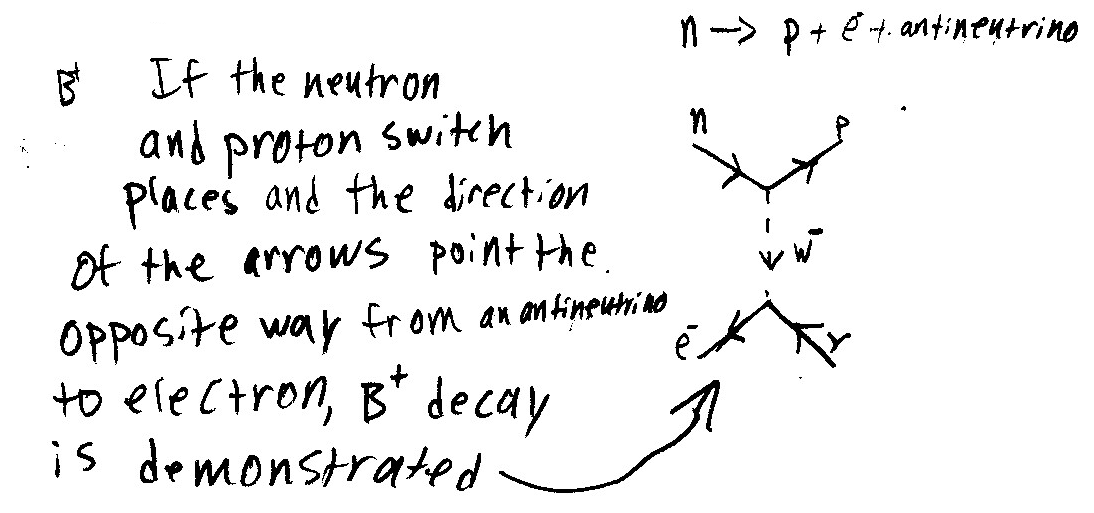 n → p + e⁻ + antineutrino
B⁺ If the neutron
and proton switch
places and the direction
of the arrows point the
opposite way from an antineutrino
to electron, B⁺ decay
is demonstrated
n p
W⁻
e⁻ ν